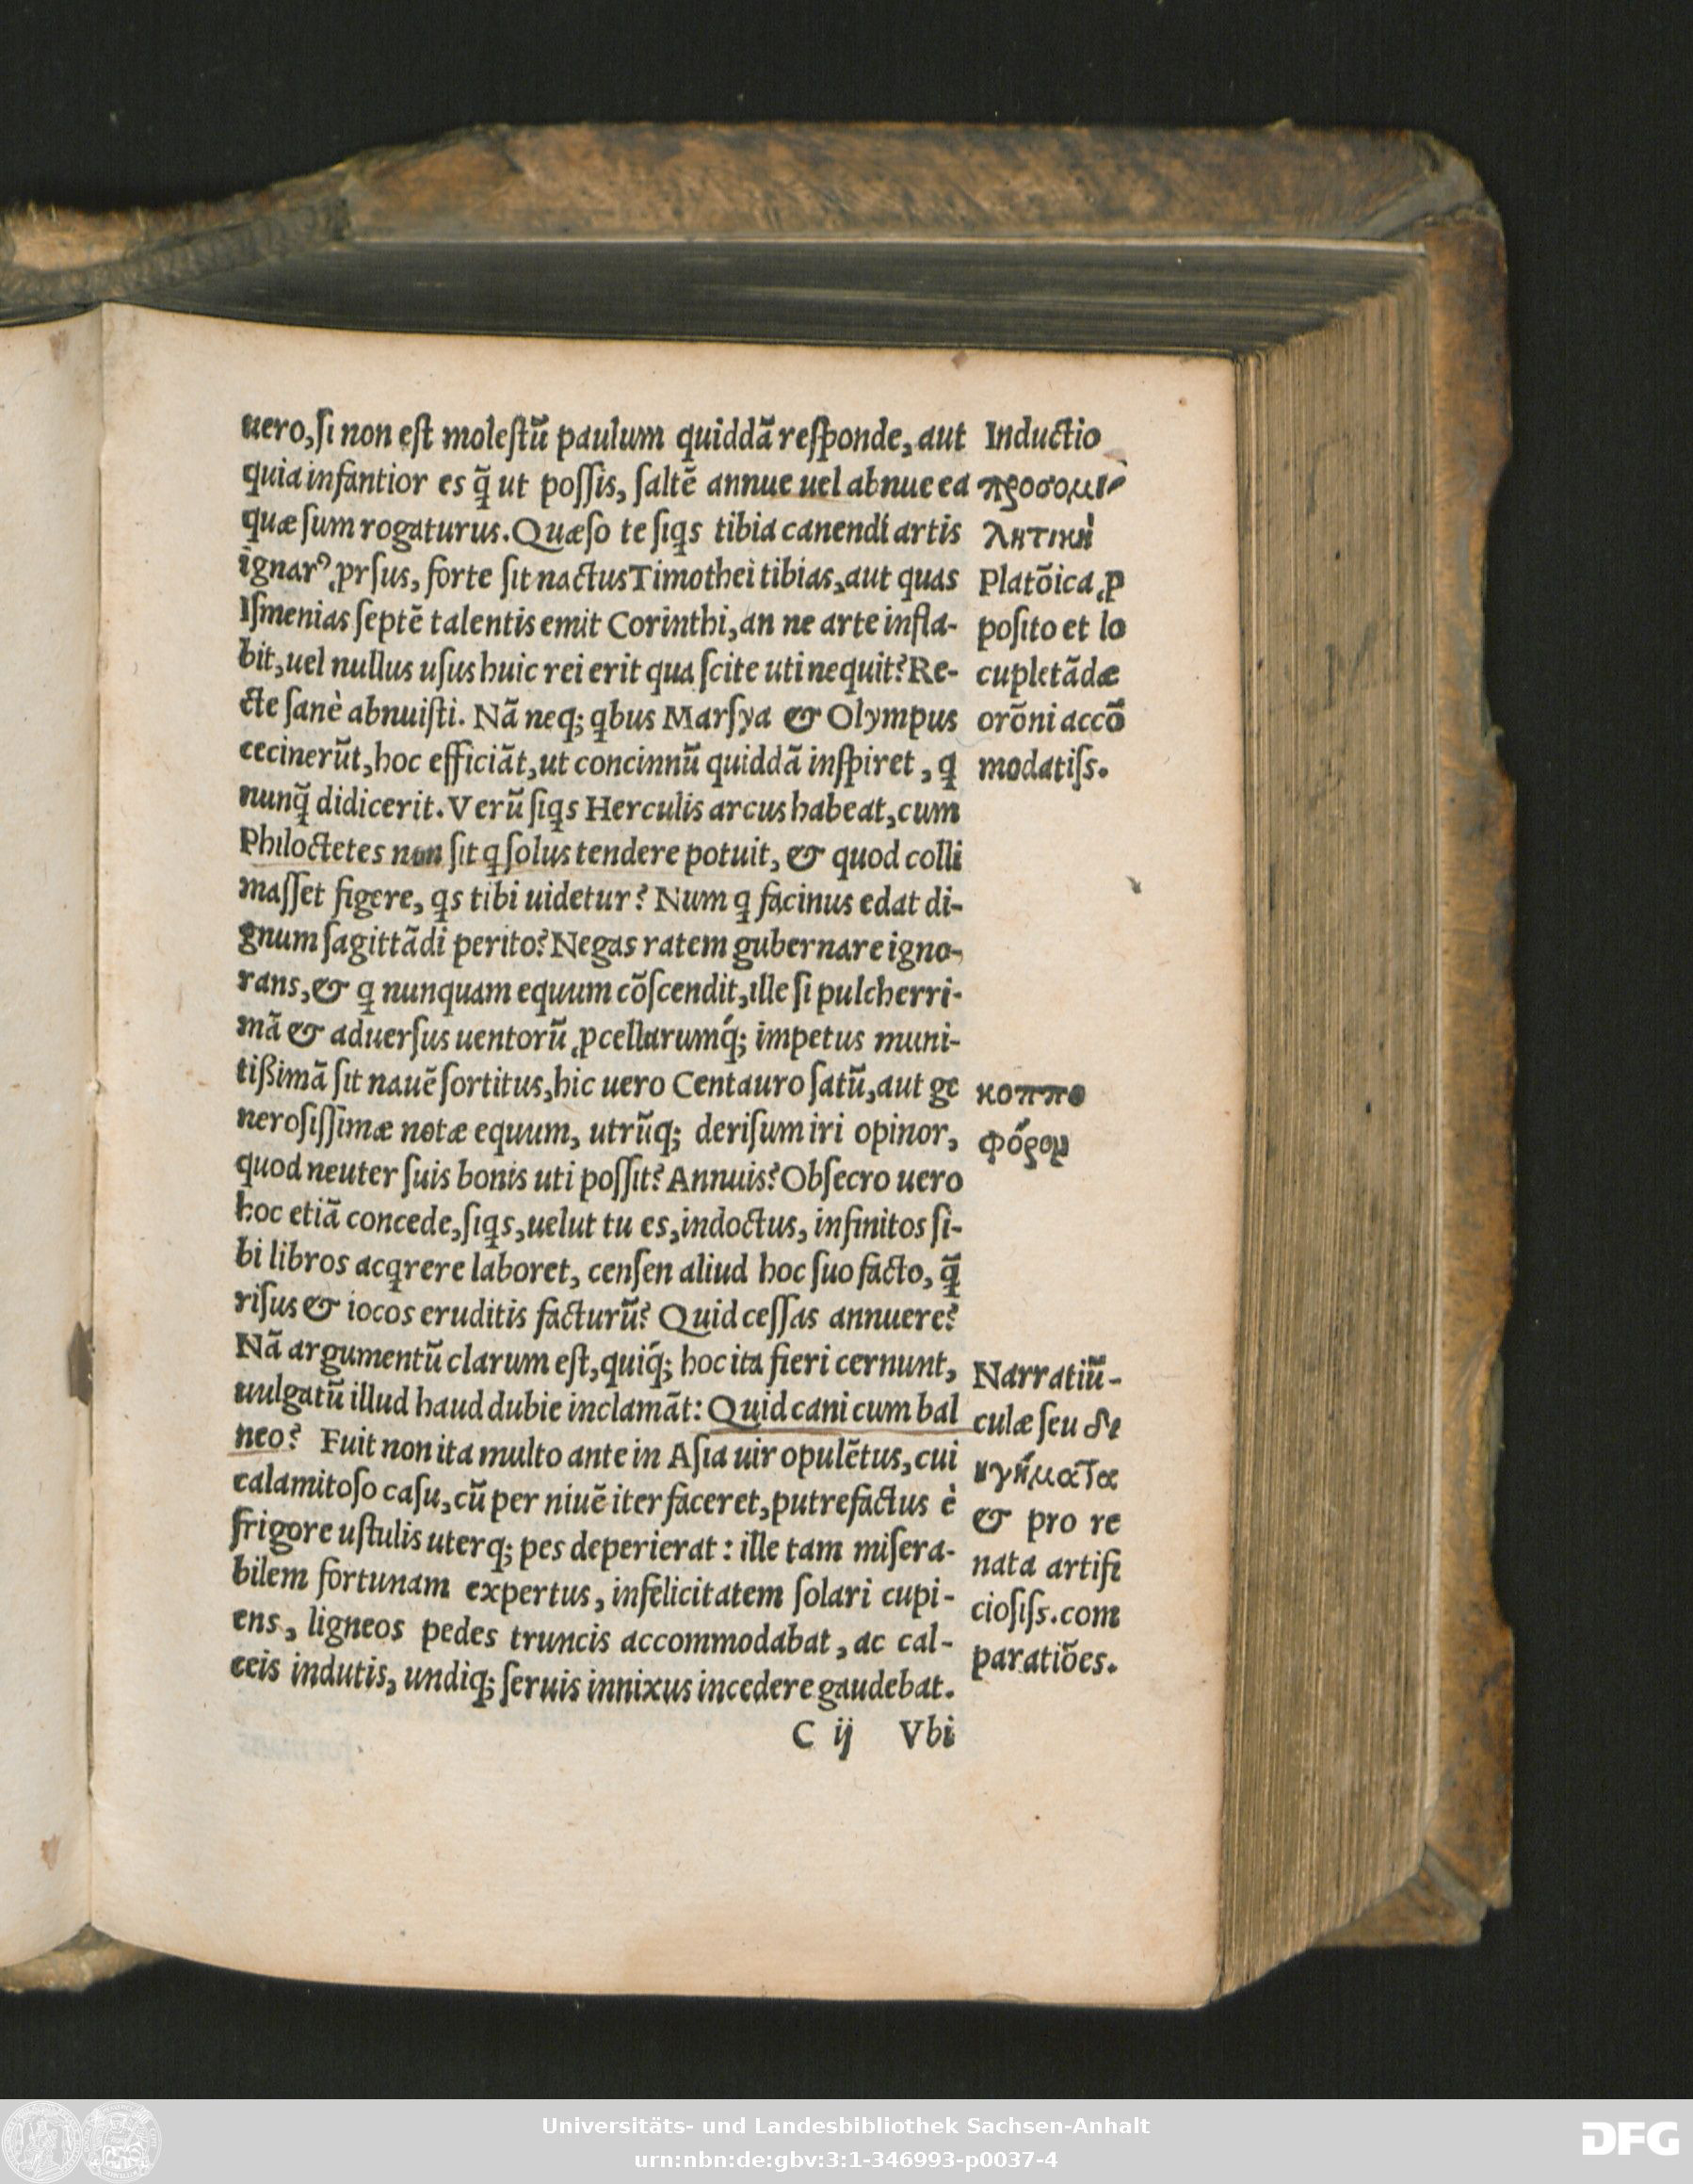 uero, ſi non eſt moleſtũ paulum quiddã reſponde, aut
quia infantior es q̃ ut poſſis, ſaltẽ annue uel abnue ea
quæ ſum rogaturus. Quæſo te ſiqs tibia canendi artis
ignarꝰ ꝓrſus, forte ſit nactus Timothei tibias, aut quas
Iſmenias ſeptẽ talentis emit Corinthi, an ne arte infla-
bit, uel nullus uſus huic rei erit qua ſcite uti nequit? Re-
cte ſanè abnuiſti. Nã neq; qbus Marſya & Olympus
cecinerũt, hoc efficiãt, ut concinnũ quiddã inſpiret, q
nunq̃ didicerit. Verũ ſiqs Herculis arcus habeat, cum
Philoctetes non ſit q ſolus tendere potuit, & quod colli
maſſet figere, qs tibi uidetur? Num q facinus edat di-
gnum ſagittãdi perito? Negas ratem gubernare igno-
rans, & q nunquam equum cõſcendit, ille ſi pulcherri-
mã & aduerſus uentorũ ꝓcellarumq́; impetus muni-
tißimã ſit nauẽ ſortitus, hic uero Centauro ſatũ, aut ge
neroſiſſimæ notæ equum, utrũq; deriſum iri opinor,
quod neuter ſuis bonis uti poſſit? Annuis? Obſecro uero
hoc etiã concede, ſiqs, uelut tu es, indoctus, infinitos ſi-
bi libros acqrere laboret, cenſen aliud hoc ſuo facto, q̃
riſus & iocos eruditis facturũ? Quid ceſſas annuere?
Nã argumentũ clarum eſt, quiq́; hoc ita fieri cernunt,
uulgatũ illud haud dubie inclamãt: Quid cani cum bal
neo? Fuit non ita multo ante in Aſia uir opulẽtus, cui
calamitoſo caſu, cũ per niuẽ iter faceret, putrefactus è
frigore uſtulis uterq; pes deperierat: ille tam miſera-
bilem fortunam expertus, infelicitatem ſolari cupi-
ens, ligneos pedes truncis accommodabat, ac cal-
ceis indutis, undiq; ſeruis innixus incedere gaudebat.
C ij Vbi
Inductio
προσομι
λητικὴ
Platõica ꝓ
poſito et lo
cupletãdæ
orõni accõ
modatiſs.
κοππο
φόρον
Narratiũ-
culæ ſeu δι
ηγήματα
& pro re
nata artifi
cioſiſs. com
paratiões.
Universitäts- und Landesbibliothek Sachsen-Anhalt
urn:nbn:de:gbv:3:1-346993-p0037-4
DFG